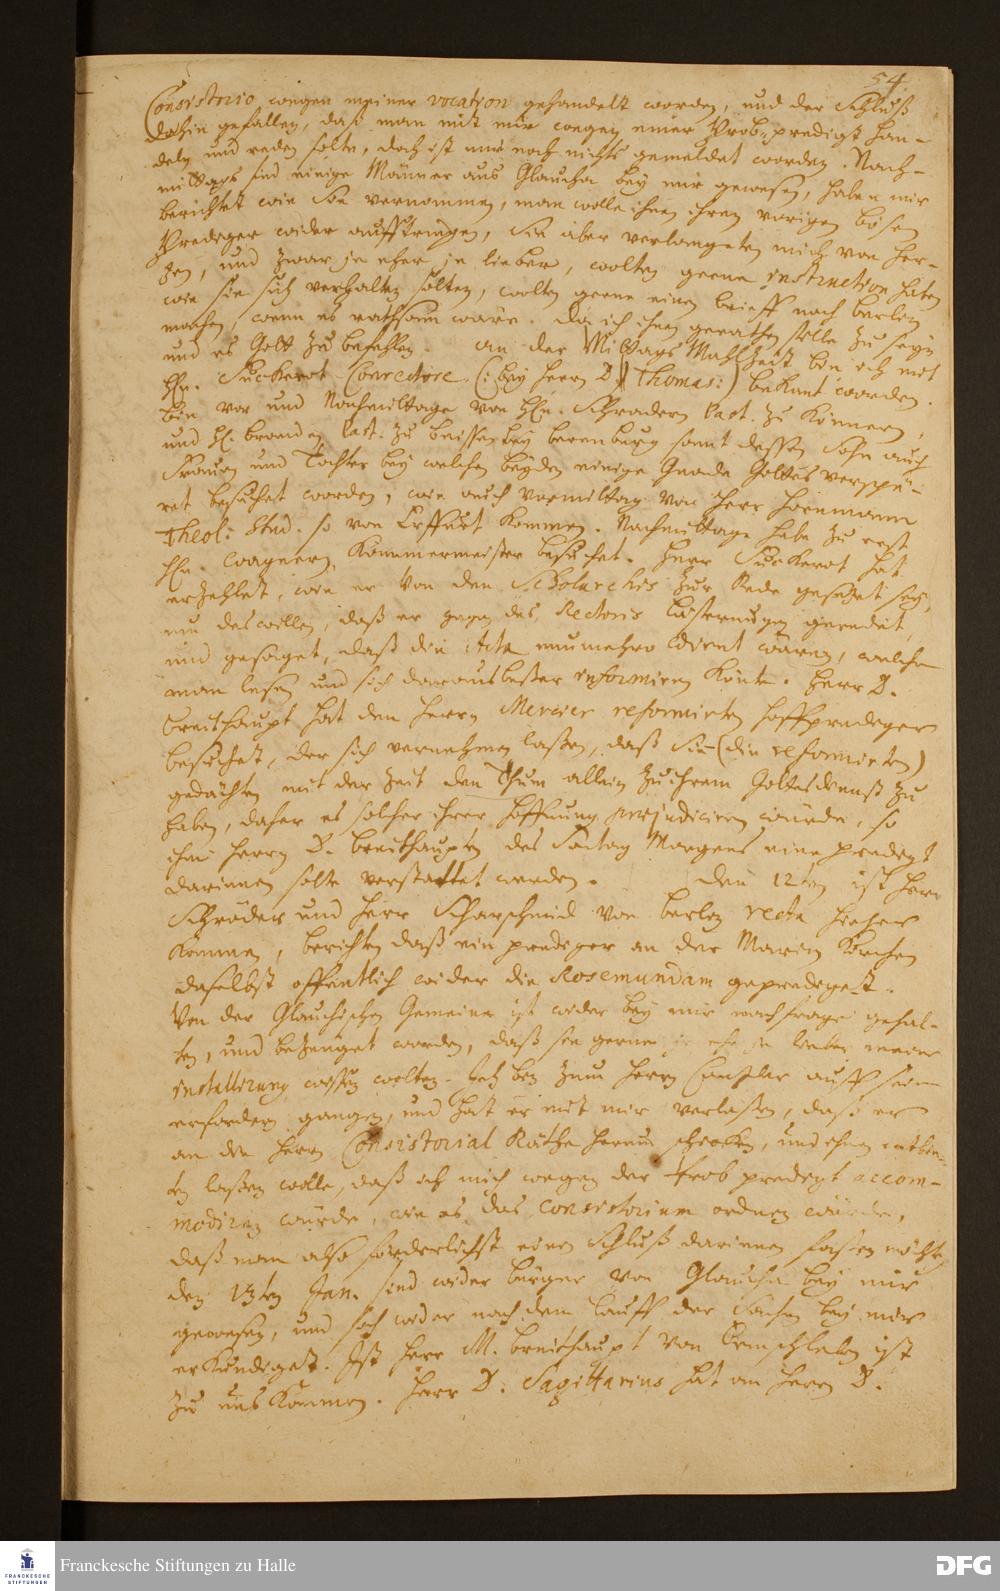 54.
Consistorio wegen meiner vocation gehandelt worden, und der Schluß
dahin gefallen, daß man mit mir wegen einer Prob-predigt han-
deln und reden solte, doch ist mir noch nichts gemeldet worden. Nach-
mittags sind einige Männer aus Glaucha bey mir gewesen, haben mir
berichtet wie Sie vernommen, man wolle ihnen ihren vorigen bösen
Prediger wider auffdringen, Sie aber verlangeten mich von Her-
zen, und zwar je eher je lieber, wolten gerne instruction haben
wie sie sich verhalten solten, wolten gerne einen brieff nach Berlin
machen, wenn es rathsam wäre. Da ich ihnen gerathen stille zu seyn
und es Gott zu befehlen. An der Mittags Mahlzeit bin ich mit
Hn. Suckerot Conrectore (: bey Herrn D. Thomas:) bekant worden.
bin vor und Nachmittage von Hn. Schradern Past. zu Könnern,
und H. Past. zu bey berenburg samt dessen Sohn auch
Frauen und Tochter bey welchen beyden einige Gnade Gottes verspü-
ret besuchet worden, wie auch vormittag von Herr Hornmann
Theol: Stud. so von Erffurt kommen. Nachmittage habe zu erst
Hn. Wagnern, Kämmermeister besuchet. Herr Suckerot hat
erzehlet, wie er von den Scholarchis zur Rede gesetzet sey,
um deswillen, daß er gegen des Rectoris Lästerungen geredet,
und gesaget, daß die Acta nunmehro wären, welche
man lesen und sich daraus beßer informiren könte. Herr D.
Breithaupt hat den Herrn Mercier reformirten Hoffprediger
besuchet, der sich vernehmen laßen, daß Sie (die reformirten)
gedächten mit der Zeit den Thum allein zu ihrem Gottesdienst zu
haben, daher es solcher ihrer Hoffnung praejudiciren würde, so
ihm Herrn D. Breithaupten des Sontag Morgens eine predigt
darinnen solte verstattet werden. Den 12ten ist Herr
Schröder und Herr Scharschmid von Berlin recta hieher
kommen, berichten daß ein prediger an der Marien Kirchen
daselbst öffentlich wider die Rosemundam geprediget.
Von der Glauchischen Gemeine ist wider bey mir nachfrage gehal-
ten, und bezeuget worden, daß sie gerne je ehe je lieber meine
installirung wissen wolten. Ich bin zum Herrn Cantzlar auff sein
erfordern gangen, und hat er mit mir verlaßen, daß er
an die Herrn Consistorial Räthe herum schicken, und ihnen entbie-
ten laßen wolle, daß ich mich wegen der Prob predigt accom-
modiren würde, wie es das Consistorium ordnen würde,
daß man also förderlichst einen Schluß darinnen faßen möchte
den 13ten Jan. sind wider bürger von Glaucha bey mir
gewesen, und sich wider nach dem Lauff der Sachen bey mir
erkundiget. Ist Herr M. Breithaupt von Ermschleben ist
zu uns kommen. Herr D. Sagittarius hat an Herrn D.
FRANCKESCHE
STIFTUNGEN
Franckesche Stiftungen zu Halle
DFG